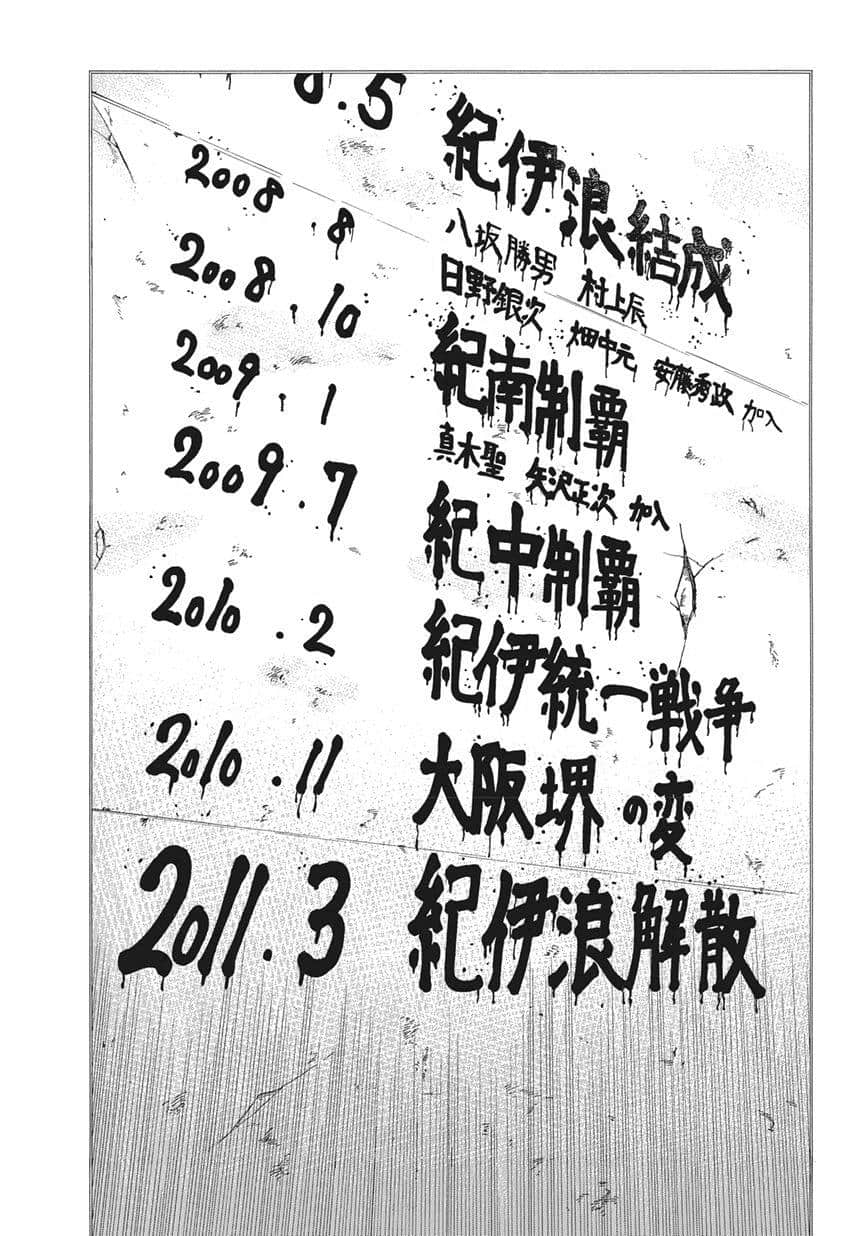 8.5 紀伊浪結成
2008.8 八坂勝男 村上辰
2008.10 日野銀次 畑中元 安藤秀政 加入
2009.1 紀南制覇
2009.7 真木聖 矢沢正次 加入
紀中制覇
2010.2 紀伊統一戦争
2010.11 大阪堺の変
2011.3 紀伊浪解散